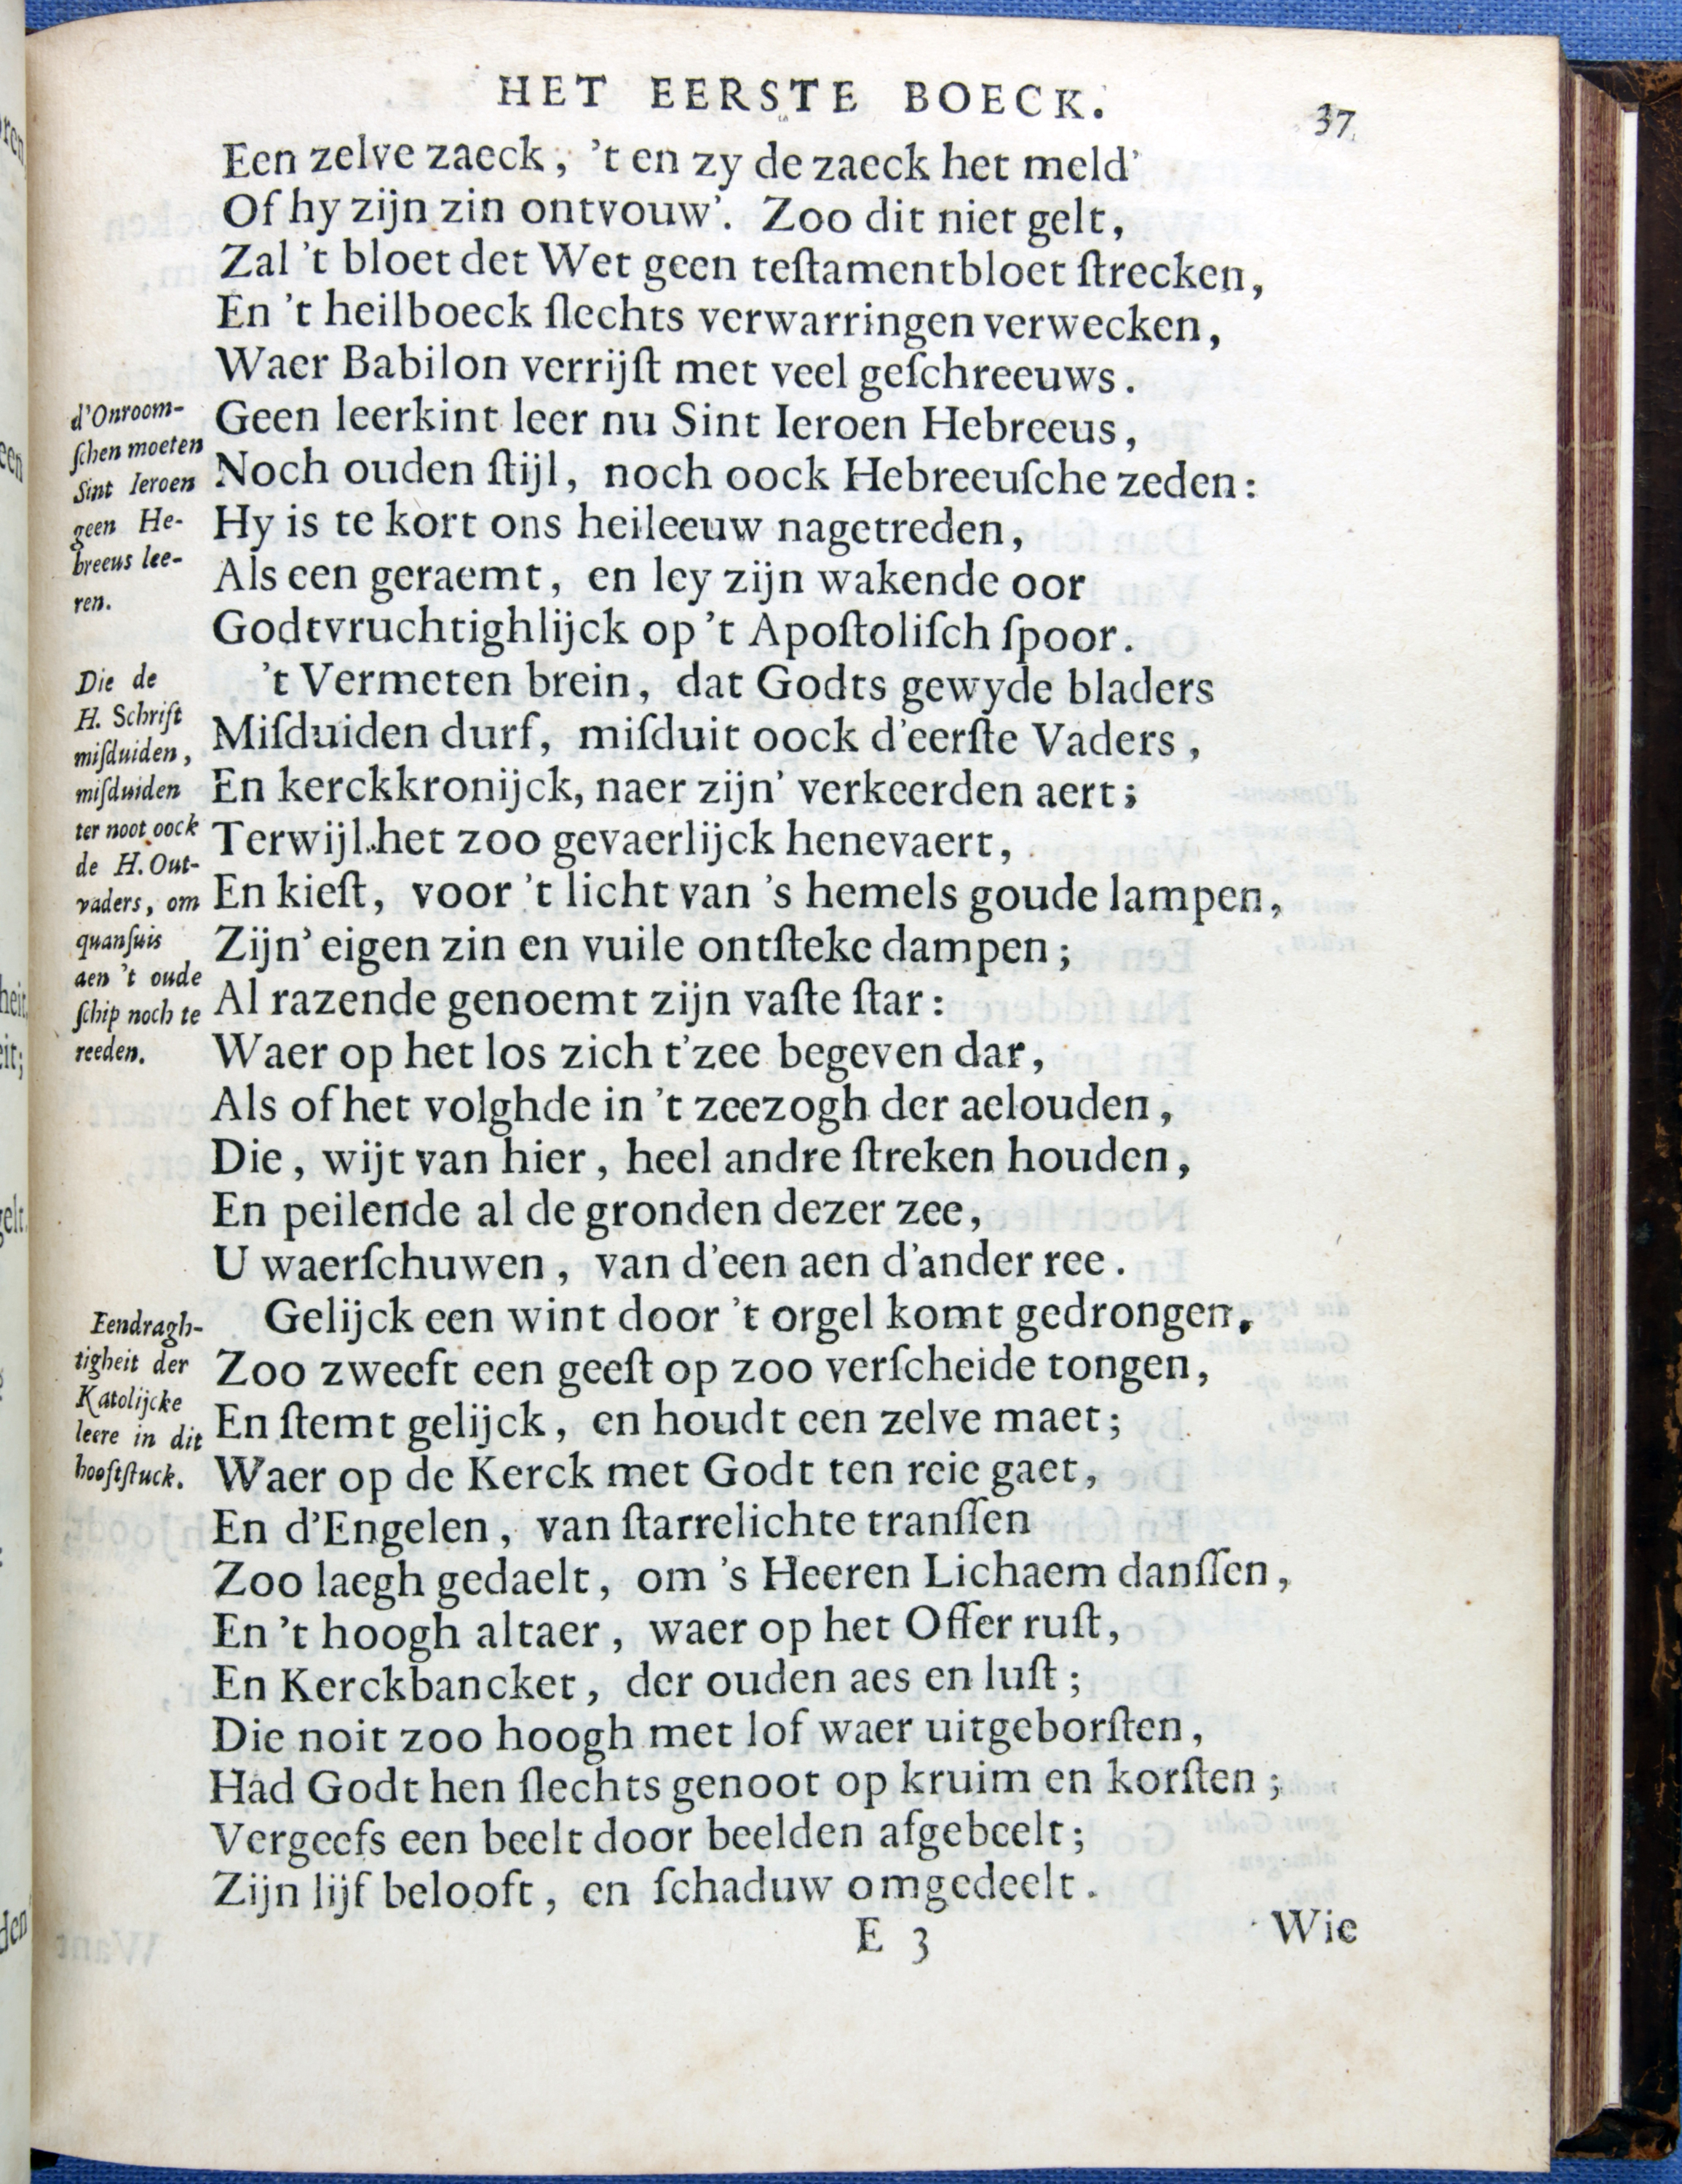 HET EERSTE BOECK.
37
Een zelve zaeck, 't en zy de zaeck het meld'
Of hy zijn zin ontvouw'. Zoo dit niet gelt,
Zal 't bloet det Wet geen teſtamentbloet ſtrecken,
En 't heilboeck ſlechts verwarringen verwecken,
Waer Babilon verrijſt met veel geſchreeuws.
Geen leerkint leer nu Sint Ieroen Hebreeus,
Noch ouden ſtijl, noch oock Hebreeuſche zeden:
Hy is te kort ons heileeuw nagetreden,
Als een geraemt, en ley zijn wakende oor
Godtvruchtighlijck op 't Apoſtoliſch ſpoor.
d'Onroom-
ſchen moeten
Sint Ieroen
geen He-
breeus lee-
ren.
't Vermeten brein, dat Godts gewyde bladers
Miſduiden durf, miſduit oock d'eerſte Vaders,
En kerckkronijck, naer zijn' verkeerden aert;
Terwijl het zoo gevaerlijck henevaert,
En kieſt, voor 't licht van 's hemels goude lampen,
Zijn' eigen zin en vuile ontſteke dampen;
Al razende genoemt zijn vaſte ſtar:
Waer op het los zich t'zee begeven dar,
Als of het volghde in 't zeezogh der aelouden,
Die, wijt van hier, heel andre ſtreken houden,
En peilende al de gronden dezer zee,
U waerſchuwen, van d'een aen d'ander ree.
Die de
H. Schrift
miſduiden,
miſduiden
ter noot oock
de H. Out-
vaders, om
quanſuis
aen 't oude
ſchip noch te
reeden.
Gelijck een wint door 't orgel komt gedrongen,
Zoo zweeft een geeſt op zoo verſcheide tongen,
En ſtemt gelijck, en houdt een zelve maet;
Waer op de Kerck met Godt ten reie gaet,
En d'Engelen, van ſtarrelichte tranſſen
Zoo laegh gedaelt, om 's Heeren Lichaem danſſen,
En 't hoogh altaer, waer op het Offer ruſt,
En Kerckbancket, der ouden aes en luſt;
Die noit zoo hoogh met lof waer uitgeborſten,
Had Godt hen ſlechts genoot op kruim en korſten;
Vergeefs een beelt door beelden afgebeelt;
Zijn lijf belooft, en ſchaduw omgedeelt.
Eendragh-
tigheit der
Katolijcke
leere in dit
hooftſtuck.
E 3
Wie